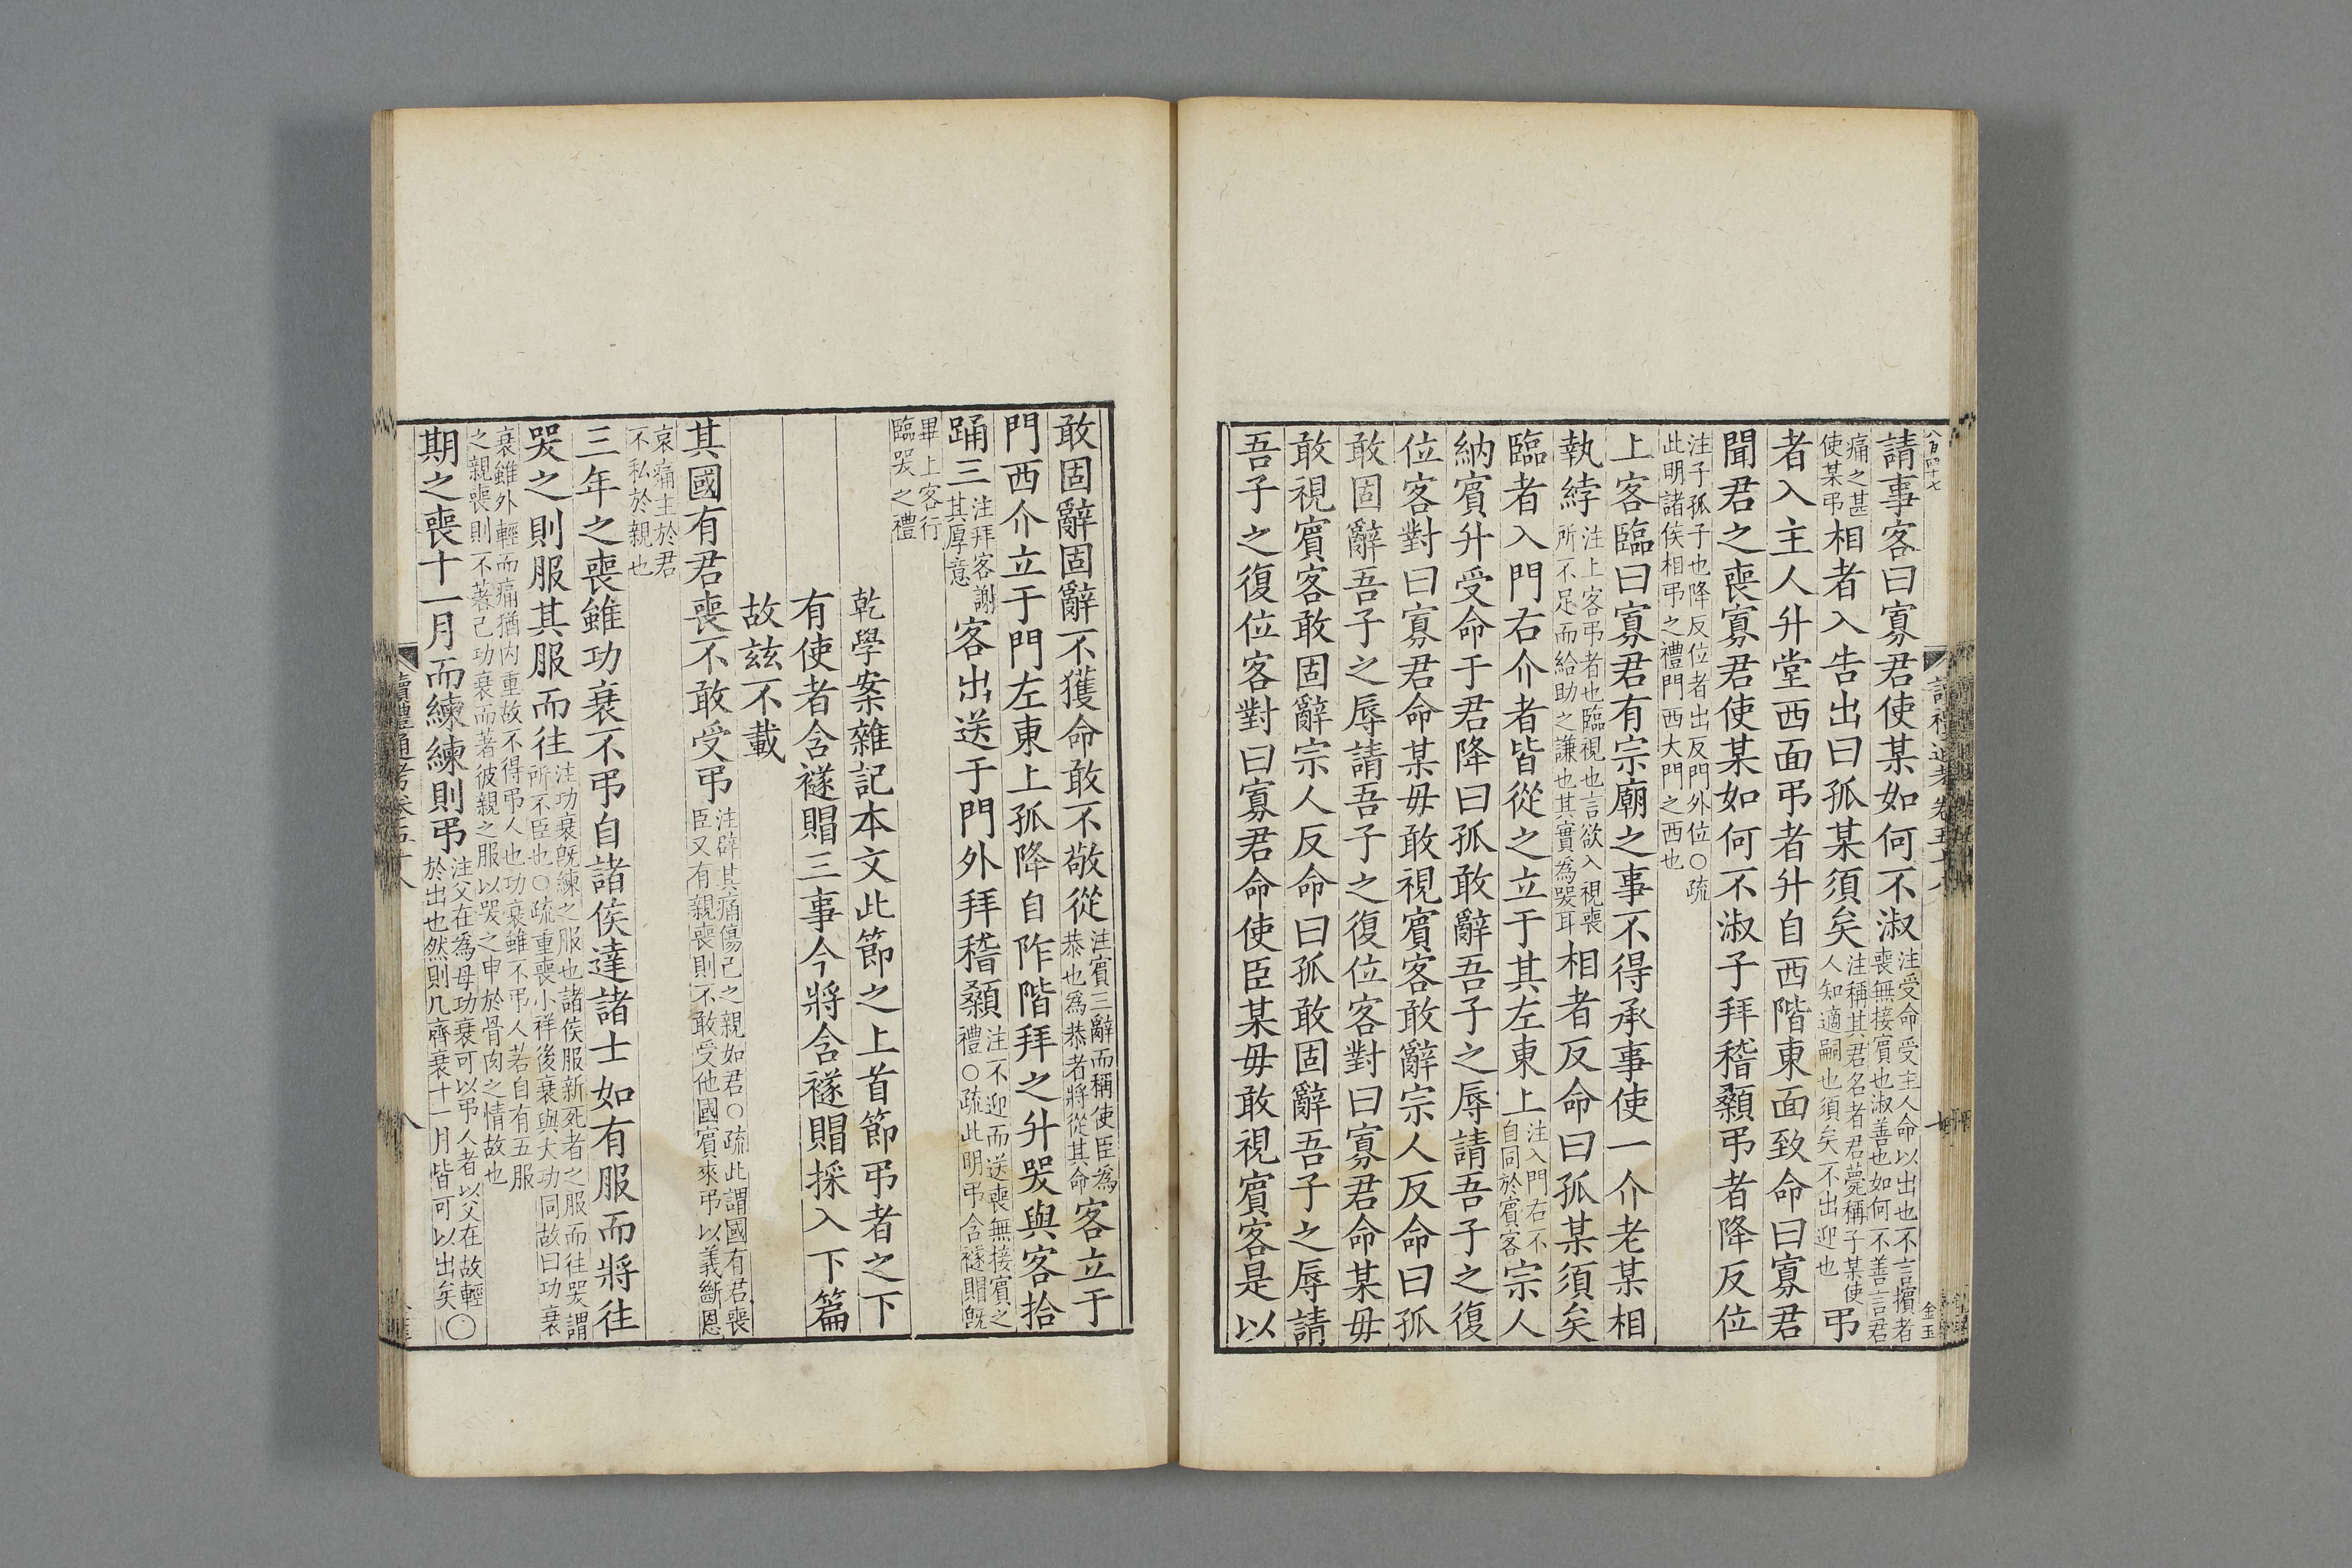 八百四十七
請事客曰寡君使某如何不淑注受命受主人命以出也不言擯者喪無接賓也淑善也如何不善言君
痛之甚使某弔相者入告出曰孤某須矣注稱其君名者君薨稱子某使人知適嗣也須矣不出迎也弔
者入主人升堂西面弔者升自西階東面致命曰寡君
聞君之喪寡君使某如何不淑子拜稽顙弔者降反位
注子孤子也降反位者出反門外位○疏此明諸侯相弔之禮門西大門之西也
上客臨曰寡君有宗廟之事不得承事使一介老某相
執綍注上客弔者也臨視也言欲入視喪所不足而給助之謙也其實為哭耳相者反命曰孤某須矣
臨者入門右介者皆從之立于其左東上注入門右不自同於賓客宗人
納賓升受命于君降曰孤敢辭吾子之辱請吾子之復
位客對曰寡君命某毋敢視賓客敢辭宗人反命曰孤
敢固辭吾子之辱請吾子之復位客對曰寡君命某毋
敢視賓客敢固辭宗人反命曰孤敢固辭吾子之辱請
吾子之復位客對曰寡君命使臣某毋敢視賓客是以
敢固辭固辭不獲命敢不敬從注賓三辭而稱使臣為恭也為恭者將從其命客立于
門西介立于門左東上孤降自阼階拜之升哭與客拾
踊三注拜客謝其厚意客出送于門外拜稽顙注不迎而送喪無接賓之禮○疏此明弔含襚賵既
畢上客行臨哭之禮
乾學案雜記本文此節之上首節弔者之下
有使者含襚賵三事今將含襚賵採入下篇
故玆不載
其國有君喪不敢受弔注辟其痛傷己之親如君○疏此謂國有君喪臣又有親喪則不敢受他國賓來弔以義斷恩
哀痛主於君不私於親也
三年之喪雖功衰不弔自諸侯達諸士如有服而將往
哭之則服其服而往注功衰既練之服也諸侯服新死者之服而往哭謂所不臣也○疏重喪小祥後衰與大功同故曰功衰
衰雖外輕而痛猶內重故不得弔人也功衰雖不弔人若自有五服之親喪則不著己功衰而著彼親之服以哭之申於骨肉之情故也
期之喪十一月而練練則弔注父在為母功衰可以弔人者以父在故輕於出也然則凡齊衰十一月皆可以出矣○
讀禮通考卷五十八
八
金玉